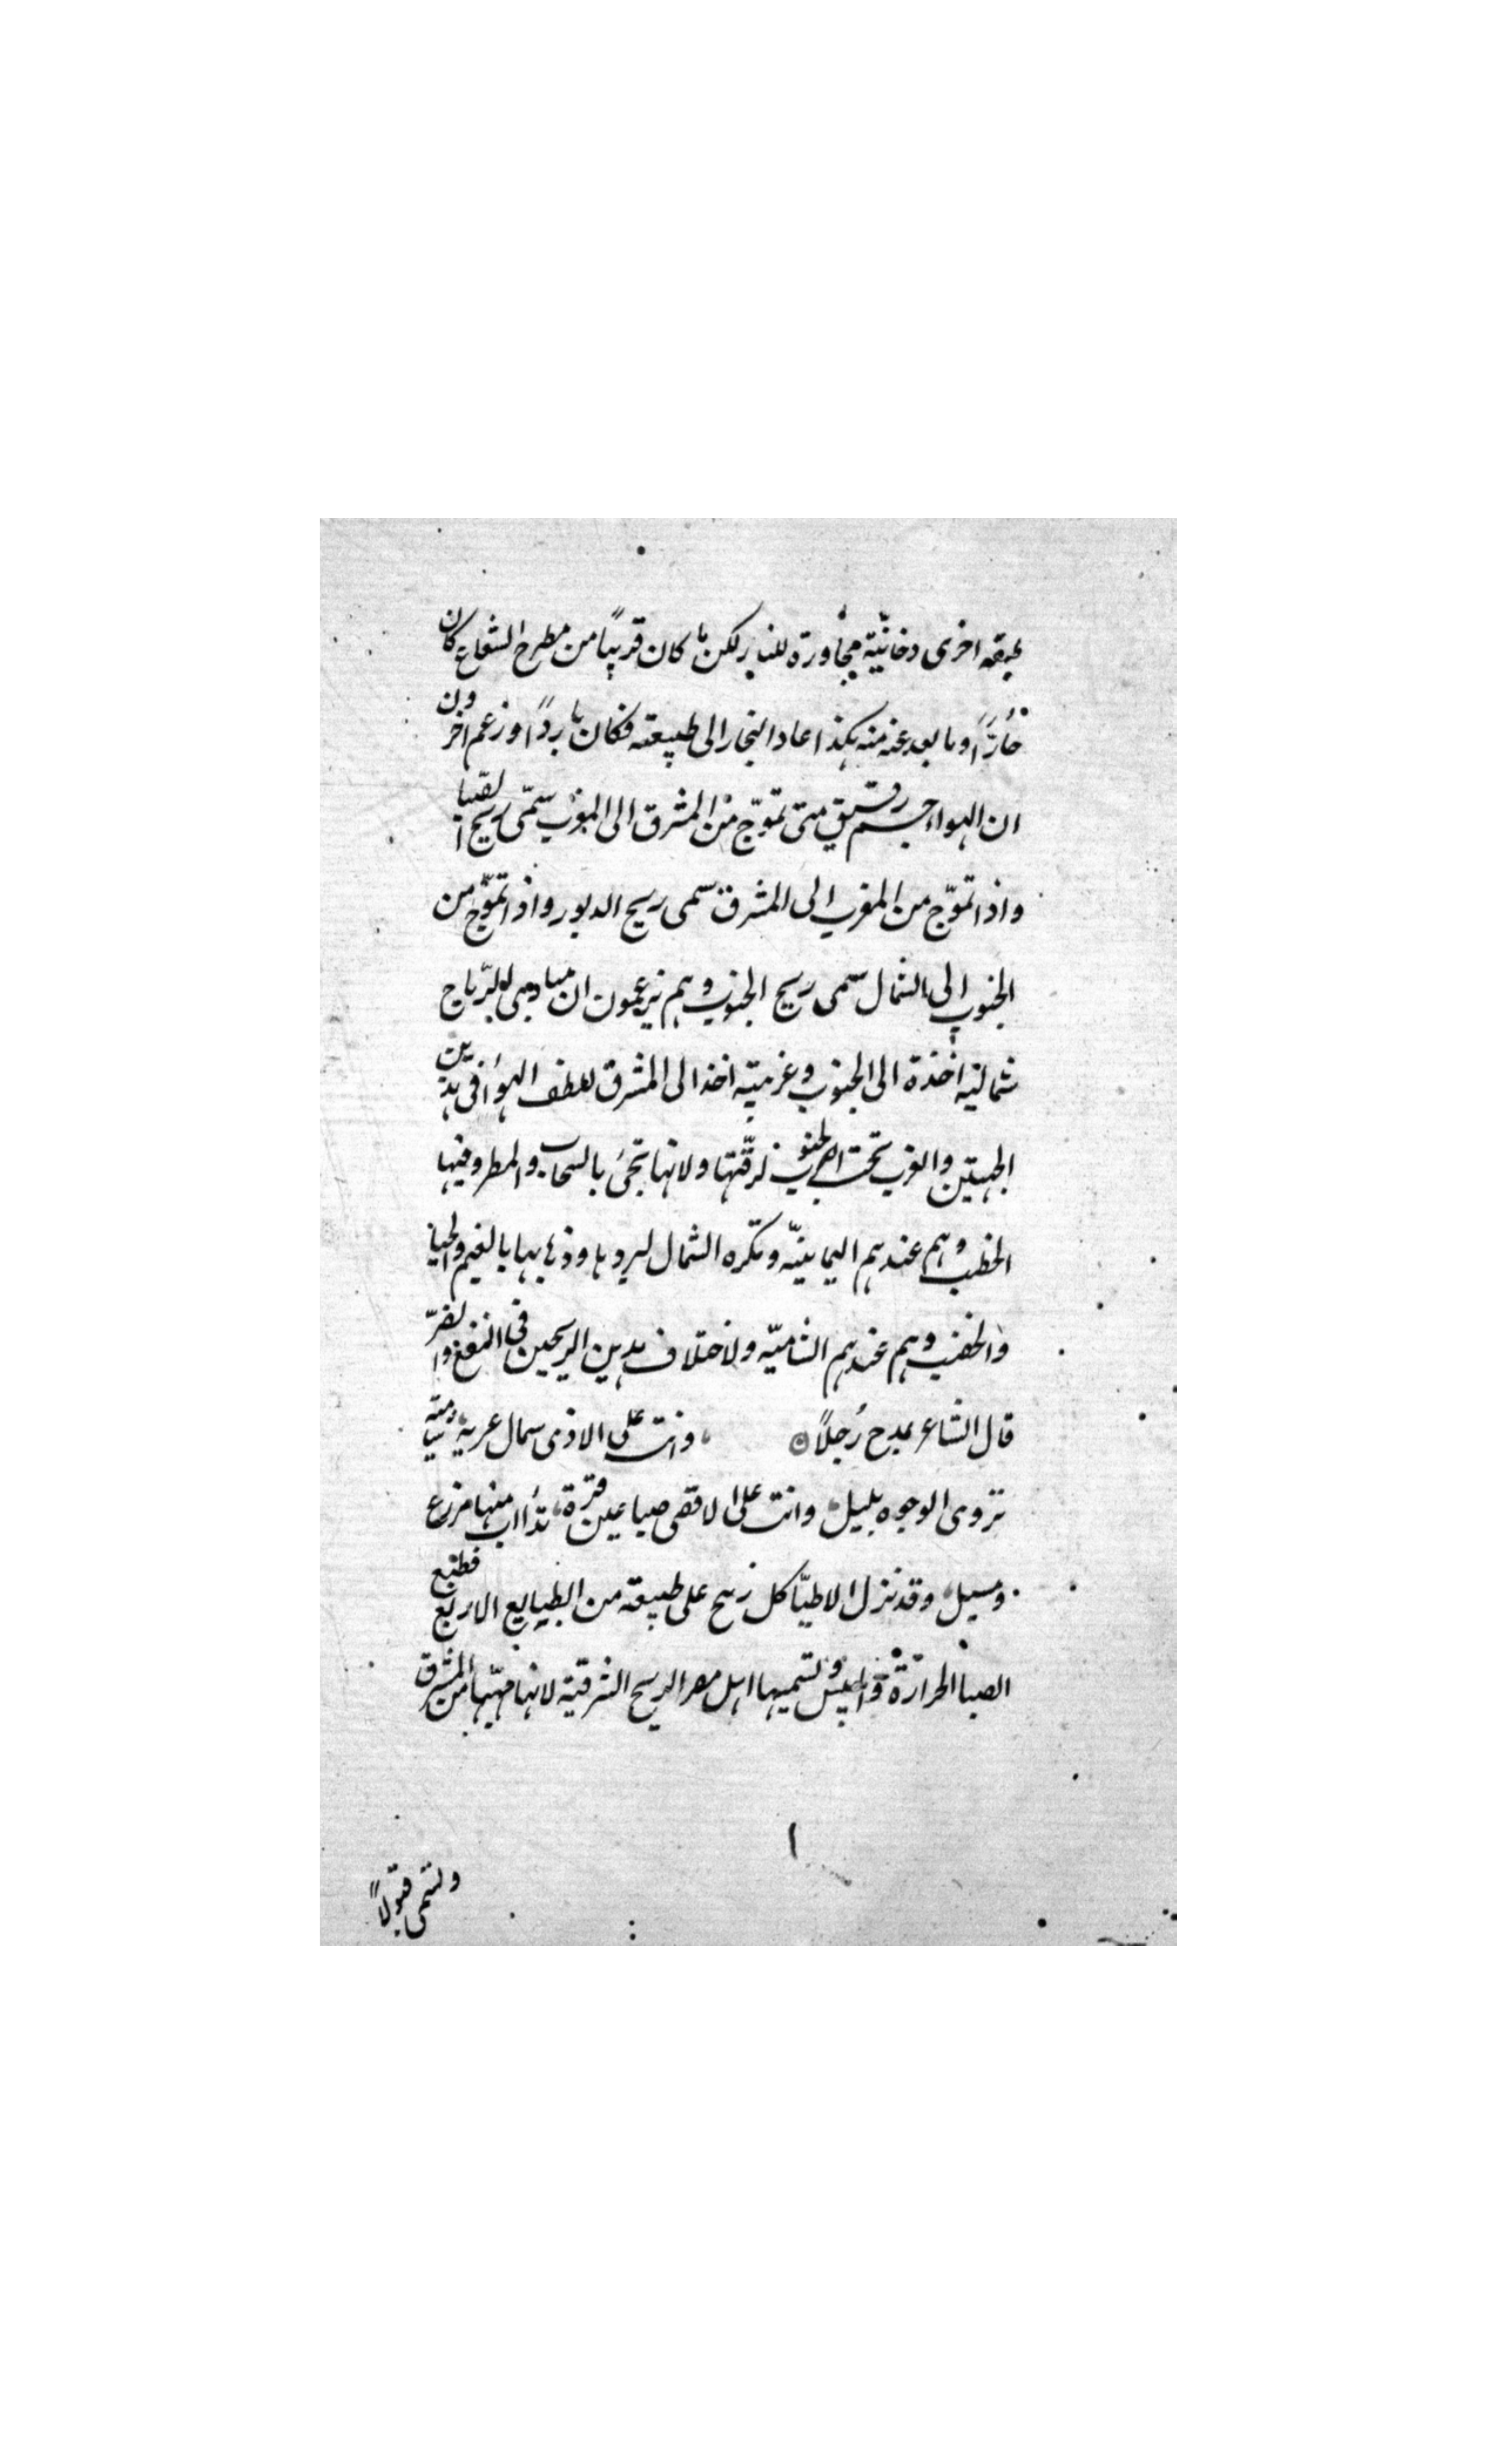 طبقه اخرى دخانيّة مجاورة للنار لكن ما كان قريبًا من مطرح الشعاع كان
حارًّا وما بعد عنه منه بكذا عاد البخار الى طبيعته فكان باردًا وزعم اخرون
ان الهواء جسم رقيق متى تموّج من المشرق الى المغرب سمّى ريح الصبا
واذا تموّج من المغرب الى المشرق سمى ريح الدبور واذا تموّج من
الجنوب الى الشمال سمى ريح الجنوب وهم يزعمون ان مبادى الرّياح
شماليه اخذة الى الجنوب وغربيّه اخذ الى المشرق لعطف الهواء فى هذين
الجهتين والعرب تحب الجنوب لرقّتها ولانها تجئ بالسحاب والمطر وفيها
الخطب وهم عندهم اليمانيّه وتكره الشمال لبردها وذهابها بالغيم والحيا
والخصب وهم عندهم الشاميّه ولاختلاف هذين الريحين فى النفع والضرّ
قال الشاعر يمدح رُجلاً وانت على الادنى شمال عريه شاميّه
تزوى الوجوه بليل وانت على الاقصى صبا عين قرّة تذأب منها مزرع
ومسيل وقد نزل الاطبّا كل ريح على طبيعه من الطبايع الاربع فطبع
الصبا الحرارة واليبس وتسميها اهل مصر الريح الشرقيّه لانها مهبّها من المشرق
١
وتسمى قبولاً